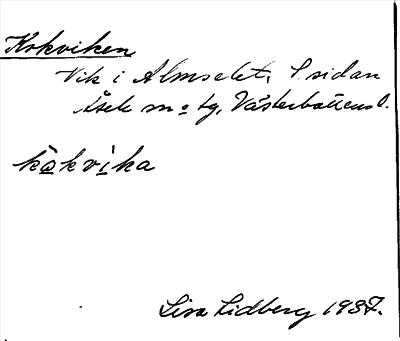 Kokviken
Vik i Älmselet, S sidan
Åsele sn o tg, Västerbottens l.
kòkvìka
Lisa Lidberg 1937.